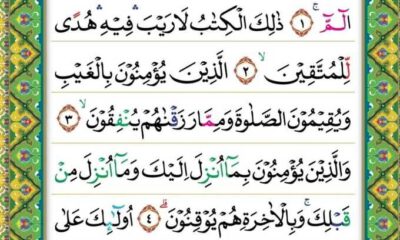 الٓمّٓ ۚ ۝١ ذٰلِكَ الْكِتٰبُ لَا رَيْبَ ۛ فِيْهِ ۛ هُدًى
لِّلْمُتَّقِيْنَ ۙ ۝٢ الَّذِيْنَ يُؤْمِنُوْنَ بِالْغَيْبِ
وَيُقِيْمُوْنَ الصَّلٰوةَ وَمِمَّا رَزَقْنٰهُمْ يُنْفِقُوْنَ ۙ ۝٣
وَالَّذِيْنَ يُؤْمِنُوْنَ بِمَآ اُنْزِلَ اِلَيْكَ وَمَآ اُنْزِلَ مِنْ
قَبْلِكَ ۚ وَبِالْاٰخِرَةِ هُمْ يُوْقِنُوْنَ ۗ ۝٤ اُولٰٓئِكَ عَلٰى